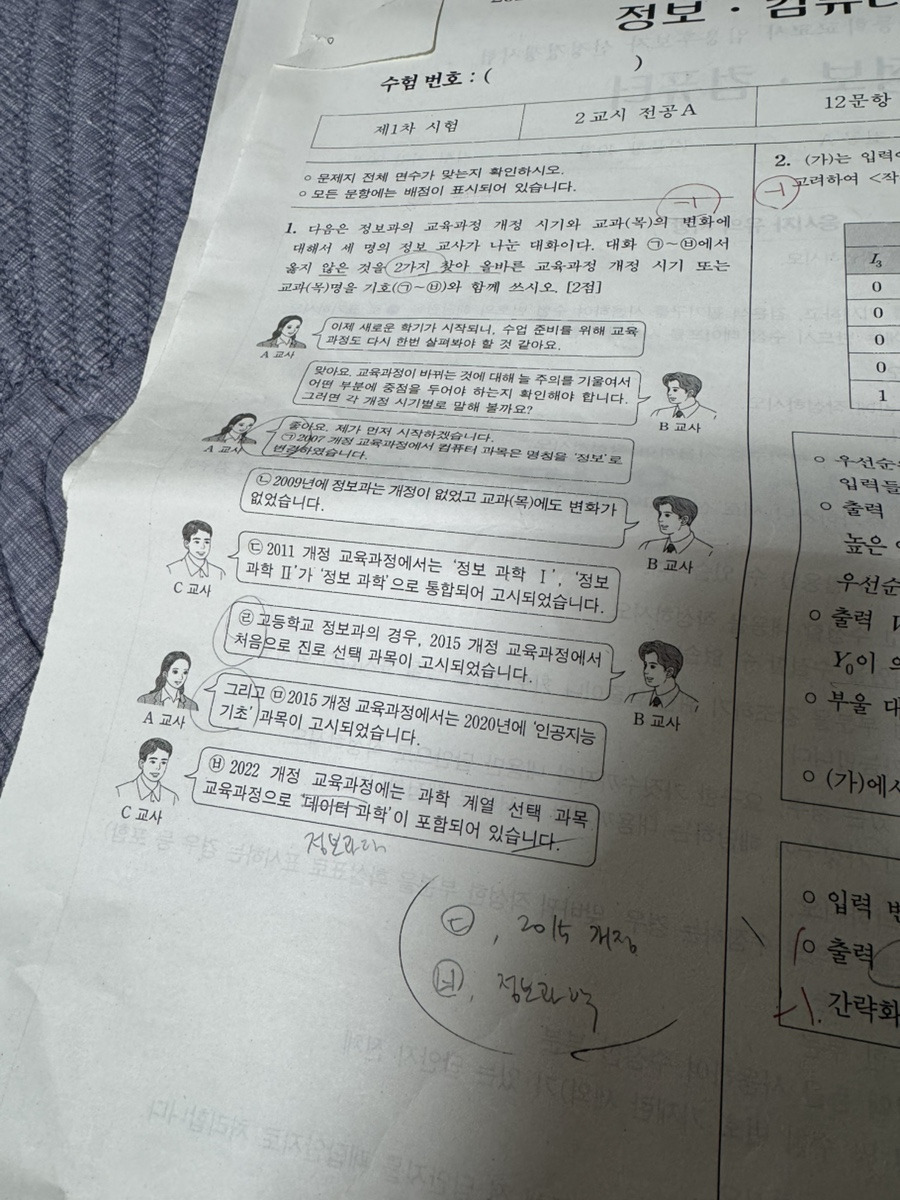 정보 · 컴퓨터
수험 번호 : ( )
제1차 시험
2교시 전공A
12문항
○ 문제지 전체 면수가 맞는지 확인하시오.
○ 모든 문항에는 배점이 표시되어 있습니다.
-1
1. 다음은 정보과의 교육과정 개정 시기와 교과(목)의 변화에
대해서 세 명의 정보 교사가 나눈 대화이다. 대화 ㉠~㉥에서
옳지 않은 것을 2가지 찾아 올바른 교육과정 개정 시기 또는
교과(목)명을 기호(㉠~㉥)와 함께 쓰시오. [2점]
이제 새로운 학기가 시작되니, 수업 준비를 위해 교육
과정도 다시 한번 살펴봐야 할 것 같아요.
A 교사
맞아요. 교육과정이 바뀌는 것에 대해 늘 주의를 기울여서
어떤 부분에 중점을 두어야 하는지 확인해야 합니다.
그러면 각 개정 시기별로 말해 볼까요?
B 교사
좋아요. 제가 먼저 시작하겠습니다.
㉠ 2007 개정 교육과정에서 컴퓨터 과목은 명칭을 '정보'로
변경하였습니다.
A 교사
㉡ 2009년에 정보과는 개정이 없었고 교과(목)에도 변화가
없었습니다.
B 교사
㉢ 2011 개정 교육과정에서는 '정보 과학 Ⅰ', '정보
과학 Ⅱ'가 '정보 과학'으로 통합되어 고시되었습니다.
C 교사
㉣ 고등학교 정보과의 경우, 2015 개정 교육과정에서
처음으로 진로 선택 과목이 고시되었습니다.
B 교사
그리고 ㉤ 2015 개정 교육과정에서는 2020년에 '인공지능
기초' 과목이 고시되었습니다.
A 교사
㉥ 2022 개정 교육과정에는 과학 계열 선택 과목
교육과정으로 '데이터 과학'이 포함되어 있습니다.
C 교사
정보과학
㉢, 2015 개정
㉥, 정보과학
2. (가)는 입력
고려하여 <작
-1
I₃
0
0
0
0
1
○ 우선순
입력들
○ 출력
높은
우선순
○ 출력 V
Y₀이
○ 부울 대
○ (가)에서
○ 입력 변
○ 출력
-1.
간략화